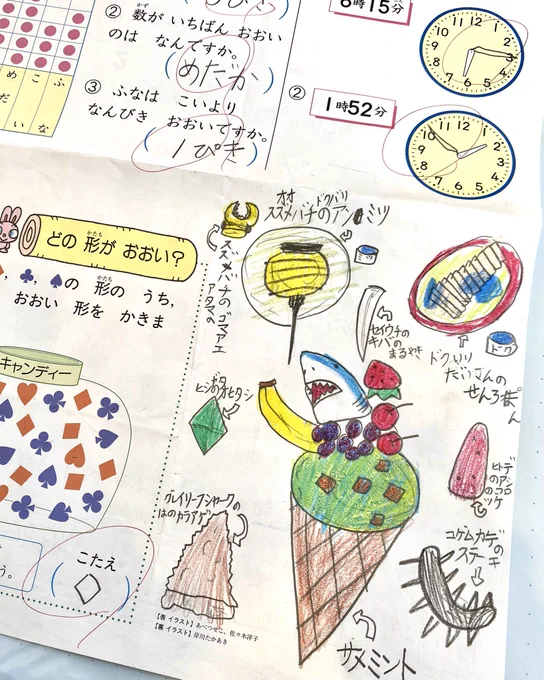 ② 数が いちばん おおい
かず
のは なんですか。
(めだか)
③ ふなは こいより
なんびき おおいですか。
(1ぴき)
め こ ふ
だ い な
6時15分
② 1時52分
どの 形が おおい?
かたち
、♣、♠の 形の うち、
かたち
おおい 形を かきま
キャンディー
う。
こたえ
(◇)
オオ
スズメバチの
ドクバリ
アン ミツ
ミツ
スズメバチの
アタマの
ゴマアエ
セイウチの
キバの
まるやき
ドク
ドクいり
ヒシの
オヒタシ
ヒトデ
のアシ
コロ
ッケ
グレイリーフシャークの
はのカラアゲ
コゲムカデの
ステーキ
サメミント
【表 イラスト】あべつせこ、佐々木洋子
【裏 イラスト】岸川たかあき